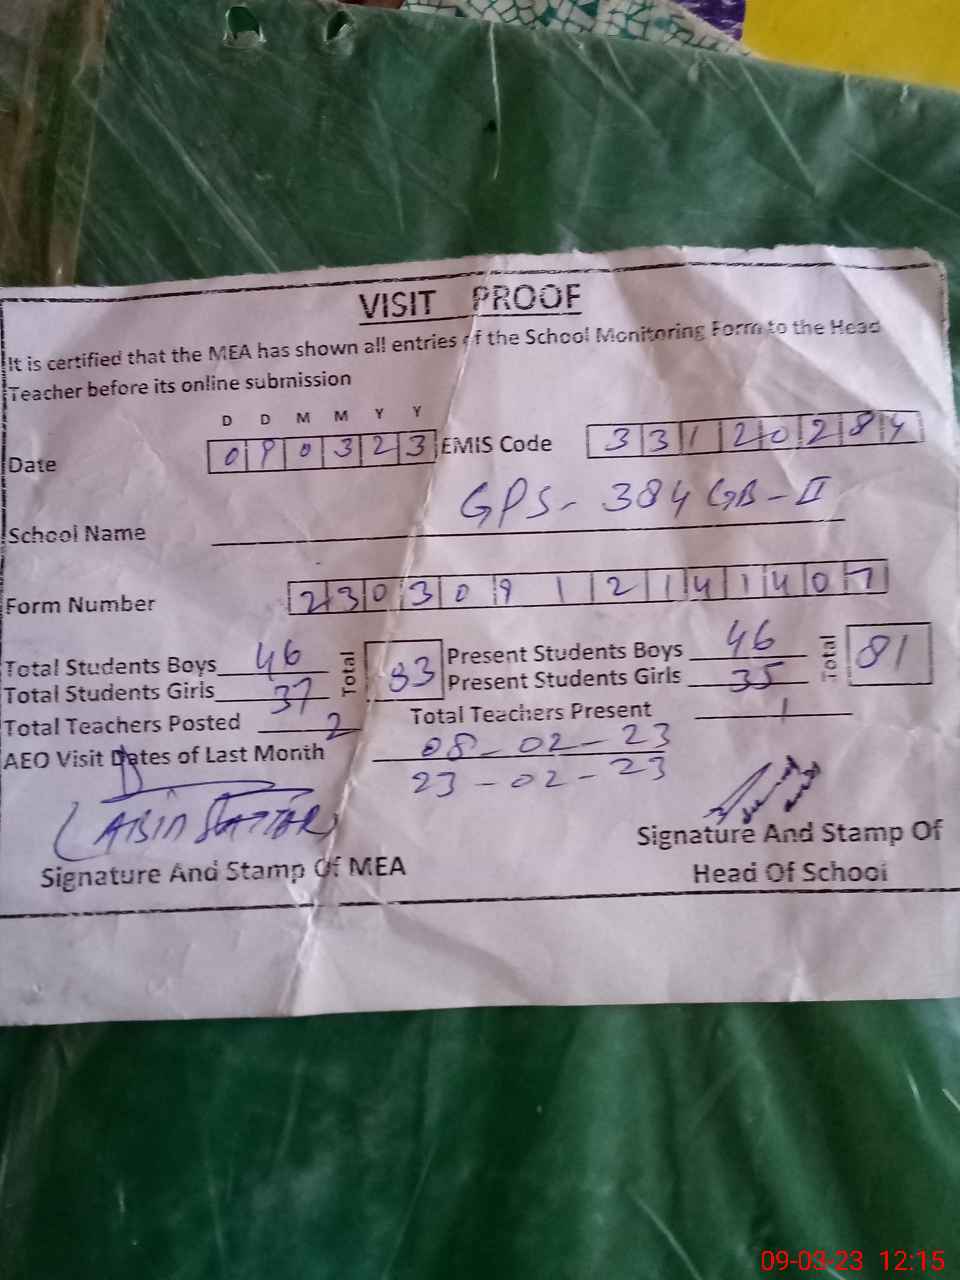 VISIT PROOF
It is certified that the MEA has shown all entries of the School Monitoring Form to the Head
Teacher before its online submission
D D M M Y Y
Date 090323 EMIS Code 33120284
School Name GPS - 384 GB - II
Form Number 23030912141407
Total Students Boys 46 Total 83 Present Students Boys 46 Total 81
Total Students Girls 37 Present Students Girls 35
Total Teachers Posted 2 Total Teachers Present 1
AEO Visit Dates of Last Month 08-02-23
23-02-23
Signature And Stamp Of MEA
Signature And Stamp Of
Head Of School
09-03-23 12:15